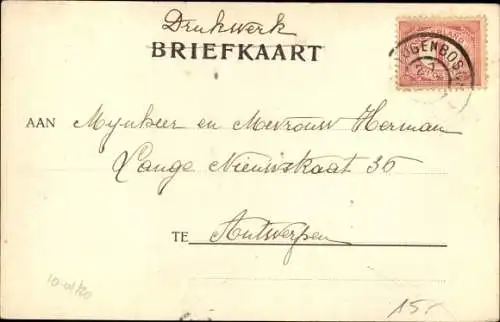 Drukwerk
BRIEFKAART
OGENBOSCH
AAN Mynheer en Mevrouw Herman
Lange Nieuwstraat 36
TE Antwerpen
15-